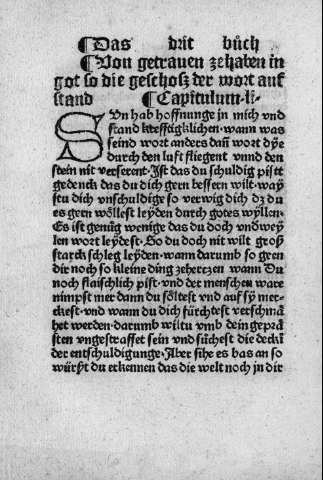 ¶Das drit bůch
¶Von getrauen ze haben in
got so die geschosz der wort auf
stand ¶Capitulum·li·
SVn hab hoffnunge in mich vnd
stand krefftigklichen·wann was
seind wort anders dañ wort dye
durch den luft fliegent vnnd den
stein nit verserent·Ist das du schuldig pist
gedenck das du dich gern bessern wilt·wayst
du dich vnschuldige so verwig dich dz du
es gern wöllest leyden durch gotes wyllen·
Es ist genůg wenige das du doch vndweylen
wort leydest·So du doch nit wilt groß
starck schleg leyden·wann darumb so geen
dir noch so kleine ding ze herczen wann Du
noch flaischlich pist·vnd det menschen ware
nimpst mer dann du söltest vnd auf sy mer-
ckest·vnd wann du dich fürchtest verschmä
het werden·darumb wiltu vmb dein geprä
sten vngestraffet sein vnd sůchest die decki
der entschuldigunge·Aber sihe es bas an so
würst du erkennen das die welt noch in dir